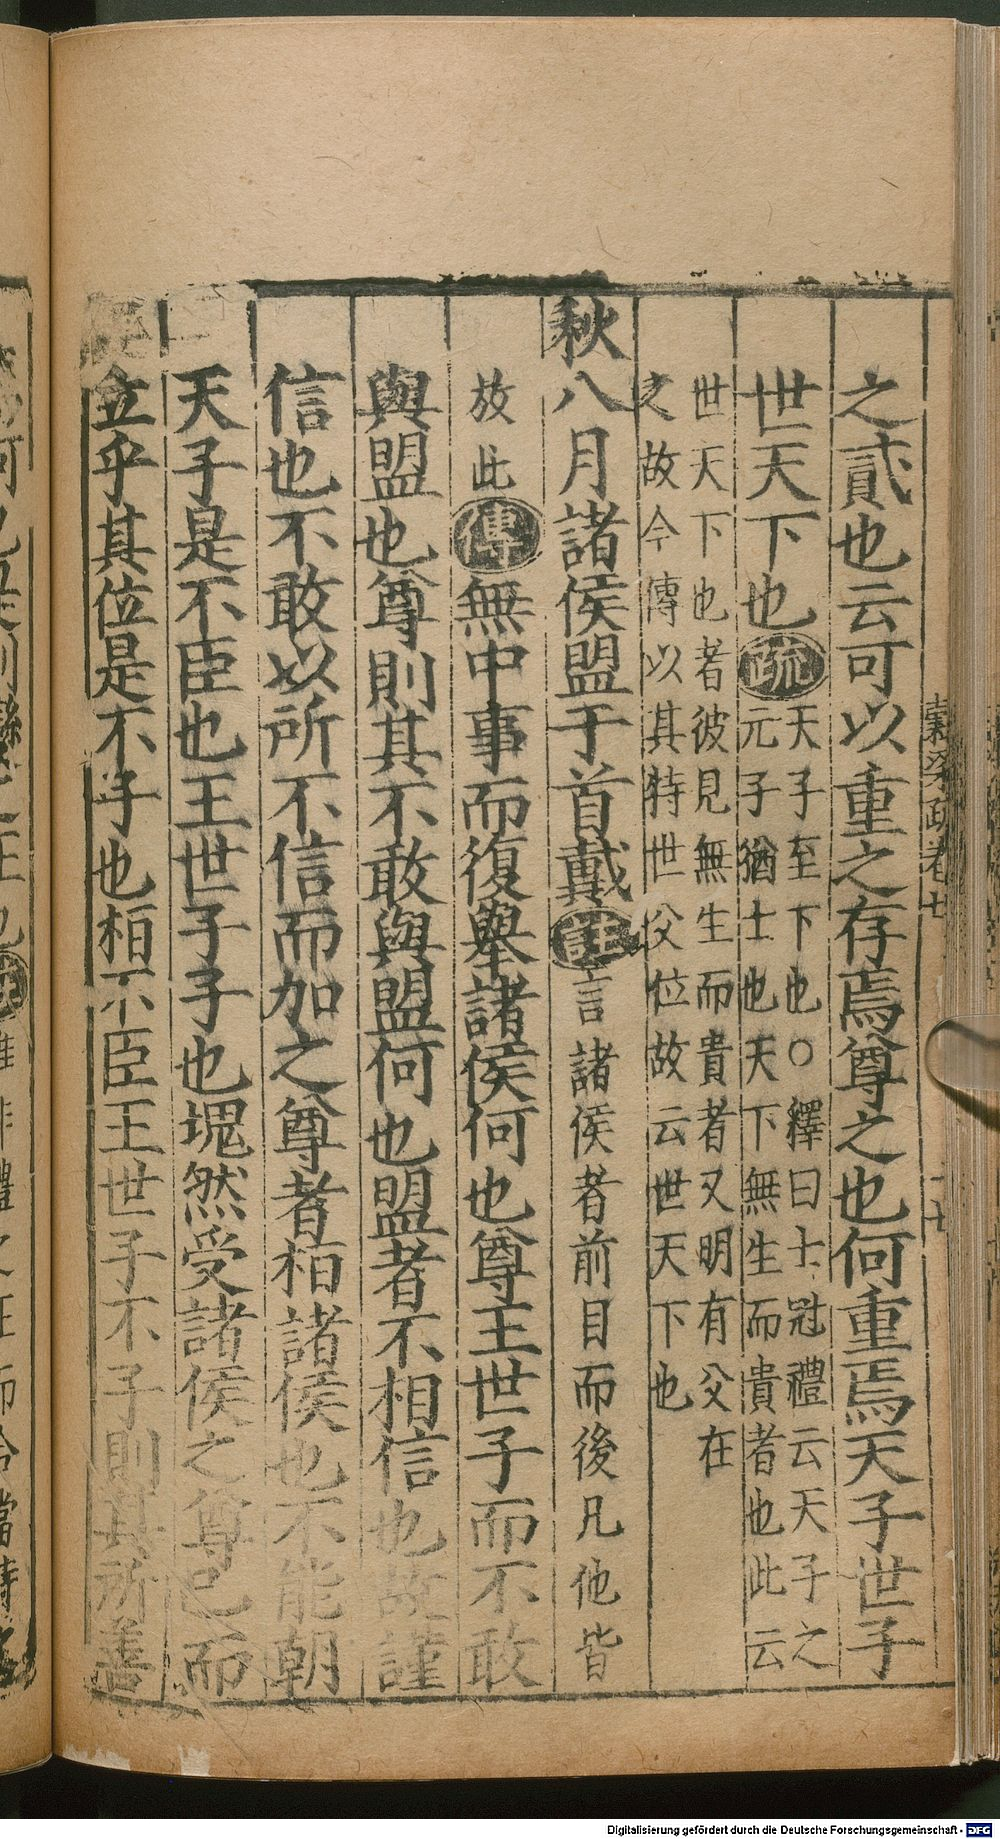 之貳也云可以重之存焉尊之也何重焉天子世子
世天下也疏天子至下也○釋曰士冠禮云天子之
元子猶士也天下無生而貴者也此云
世天下也者彼見無生而貴者又明有父在
之故今傳以其特世父位故云世天下也
秋八月諸侯盟于首戴註言諸侯者前目而後凡他皆
放此傳無中事而復舉諸侯何也尊王世子而不敢
與盟也尊則其不敢與盟何也盟者不相信也故謹
信也不敢以所不信而加之尊者桓諸侯也不能朝
天子是不臣也王世子子也塊然受諸侯之尊己而
立乎其位是不子也桓不臣王世子不子則其所善
穀梁疏卷七
Digitalisierung gefördert durch die Deutsche Forschungsgemeinschaft - DFG